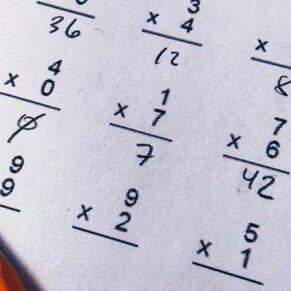 3
x 4
36
12
x
8
4
x 0
0
1
x 7
7
7
x 6
42
9
9
9
x 2
5
x 1